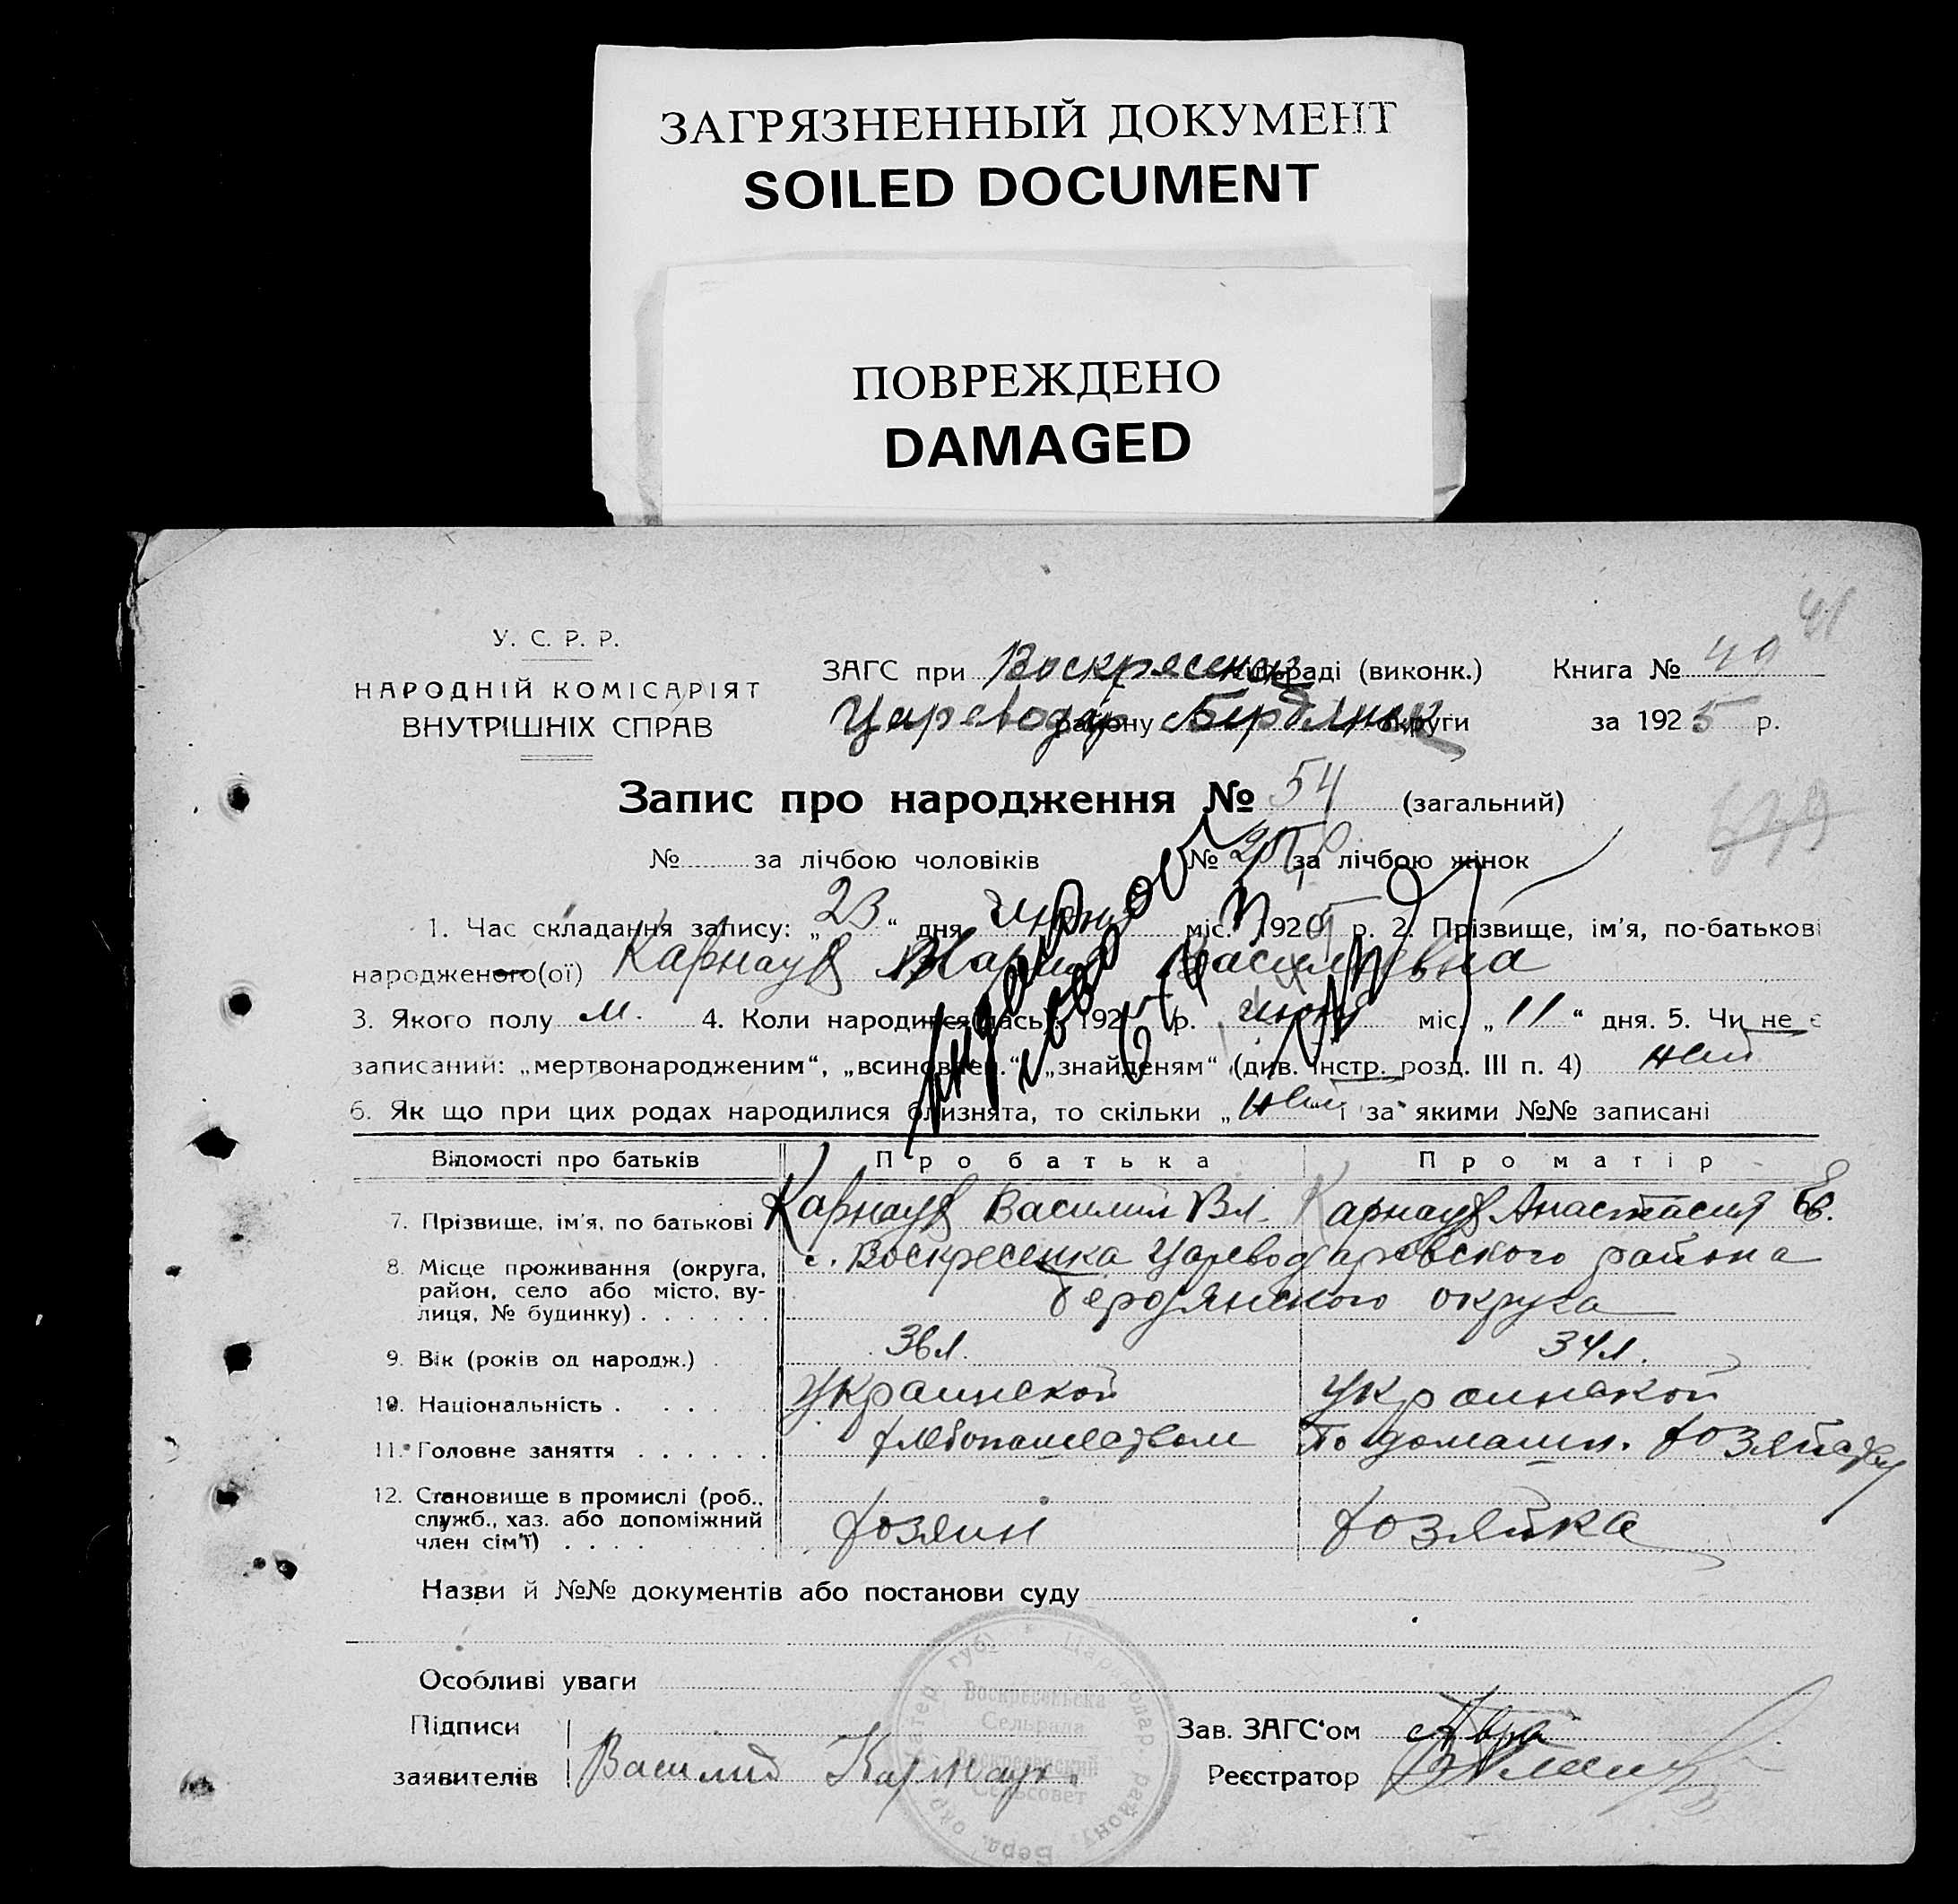 ЗАГРЯЗНЕННЫЙ ДОКУМЕНТ
SOILED DOCUMENT
ПОВРЕЖДЕНО
DAMAGED
41
У. С. Р. Р.
НАРОДНІЙ КОМІСАРІЯТ
ВНУТРІШНІХ СПРАВ
ЗАГС при Воскресенск сільраді (виконк.) Книга № 49
Цареводар району Бердянск округи за 1925 р.
Запис про народження № 54 (загальний)
№ за лічбою чоловіків № за лічбою жінок
1. Час складання запису: „23“ дня июня міс. 1925 р. 2. Прізвище, ім'я, по-батькові
народженого(ої) Карнаух Мария Васильевна
3. Якого полу 4. Коли народився(лась): 192 р. июня міс. „11“ дня. 5. Чи не є
записаний: „мертвонародженим“, „всиновлен.“, „знайденям“ (див. інстр. розд. III п. 4) нет
6. Як що при цих родах народилися близнята, то скільки „нет і за якими №№ записані
Відомості про батьків Про батька Про матір
7. Прізвище, ім'я, по батькові Карнаух Василий Вл. Карнаух Анастасия Ев.
8. Місце проживання (округа, район, село або місто, вулиця, № будинку) с. Воскресенка Цареводаровского района
Бердянского округа
9. Вік (років од народж.) 36 л. 34 л.
10. Національність Украинской Украинской
11. Головне заняття хлебопашеством По домашн. хозяйству
12. Становище в промислі (роб., служб., хаз. або допоміжний член сім'ї) хозяин хозяйка
Назви й №№ документів або постанови суду
Особливі уваги
Підписи Зав. ЗАГС'ом
заявителів Василий Карнаух Реєстратор
Воскресенська
Сельрада
Воскресенский
Сельсовет